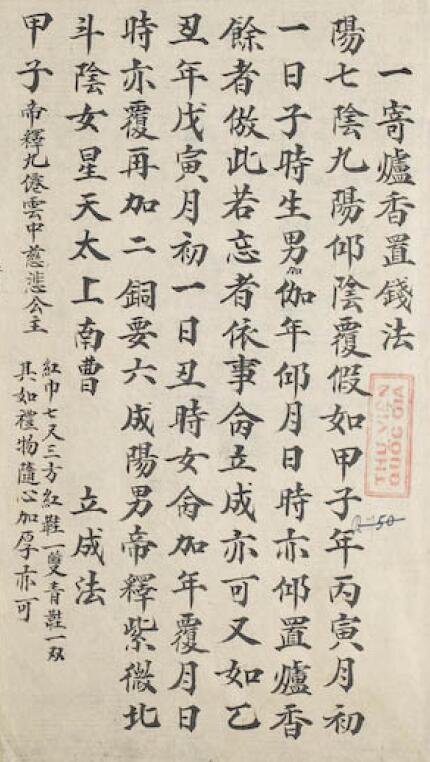 一寄爐香置錢法
陽七陰九陽仰陰覆假如甲子年丙寅月初
一日子時生男伽年仰月日時亦仰置爐香
餘者倣此若忘者依事命立成亦可又如乙
丑年戊寅月初一日丑時女命加年覆月日
時亦覆再加二銅要六成陽男帝釋紫微北
斗陰女星天太上南曹 立成法
甲子帝釋九僊雲中慈悲公主
紅巾七尺三方紅鞋一雙青鞋一双
其如禮物隨心加厚亦可
THƯ VIỆN
QUỐC GIA
50